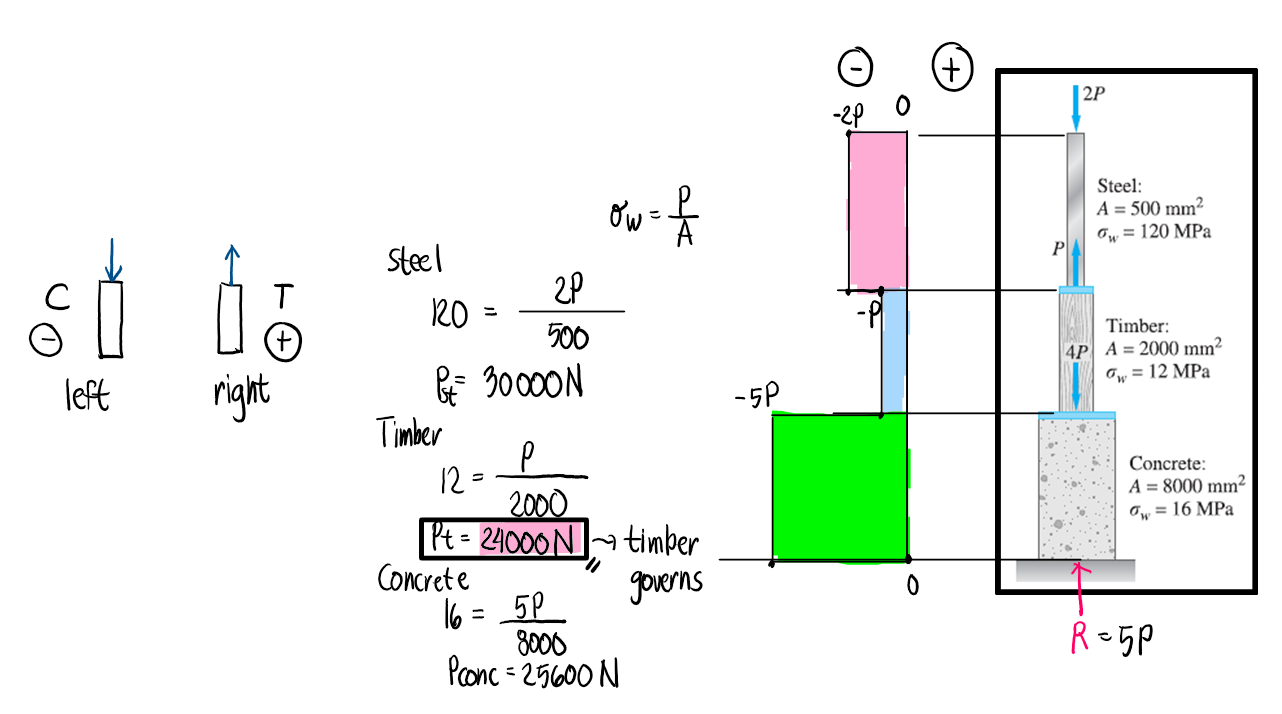 C
−
left
T
+
right
σw = P/A
Steel
120 = 2P/500
Pst = 30000N
Timber
12 = P/2000
Pt = 24000N → timber governs
Concrete
16 = 5P/8000
Pconc = 25600 N
−
+
-2P
0
-P
-5P
0
2P
Steel:
A = 500 mm²
σw = 120 MPa
P
Timber:
A = 2000 mm²
σw = 12 MPa
4P
Concrete:
A = 8000 mm²
σw = 16 MPa
R = 5P